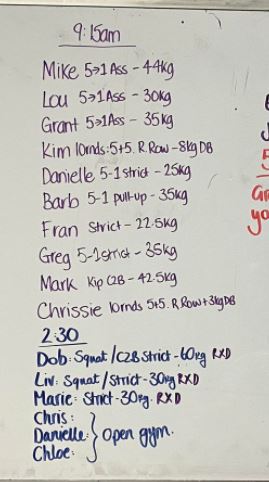 9:15am
Mike 5→1 Ass - 44kg
Lou 5→1 Ass - 30kg
Grant 5→1 Ass - 35kg
Kim 10rnds: 5+5. R.Row - 8kg DB
Danielle 5-1 strict - 25kg
Barb 5-1 pull-up - 35kg
Fran strict - 22.5kg
Greg 5-1 strict - 35kg
Mark Kip C2B - 42.5kg
Chrissie 10rnds 5+5. R.Row + 3kg DB
2:30
Dob: Squat / C2B Strict - 60kg RXD
Liv: Squat / Strict - 30kg RXD
Marie: Strict - 30kg. RXD
Chris:
Danielle: } Open gym.
Chloe: